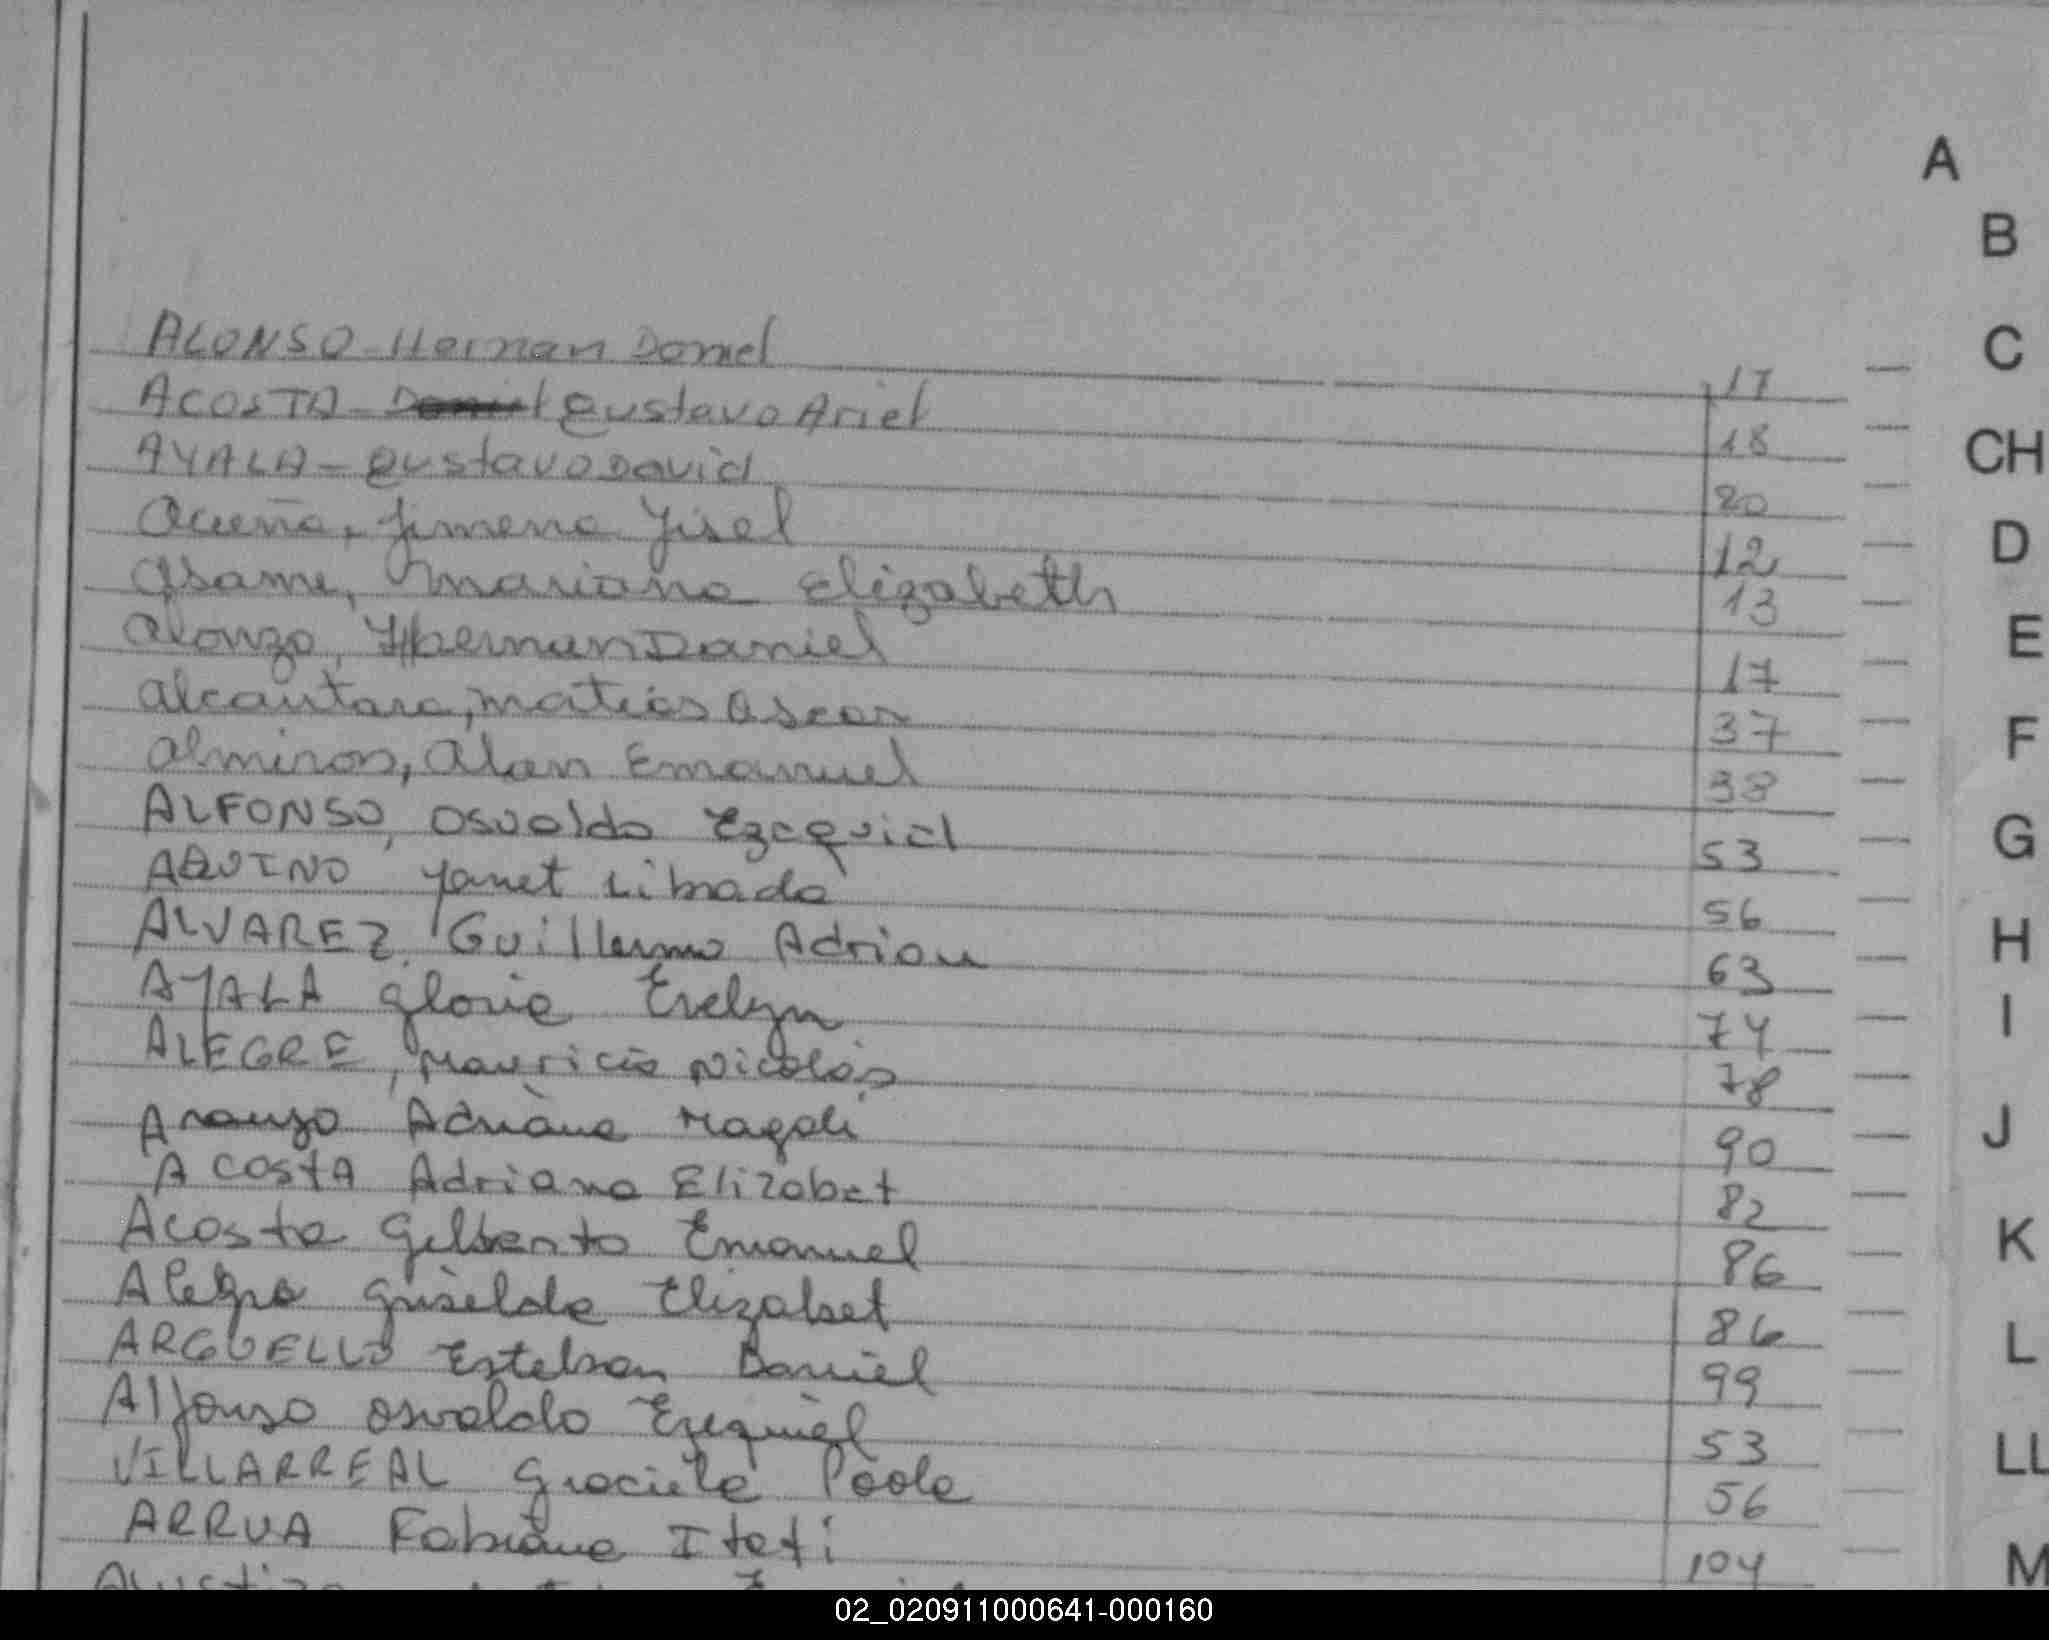 A
B
C
CH
D
E
F
G
H
I
J
K
L
LL
M
ALONSO Hernan Daniel 17
ACOSTA Gustavo Ariel 18
AYALA - Gustavo David 20
Acuña, Jimena Yisel 12
Asame, Mariana Elizabeth 13
Alonzo, Hernan Daniel 17
Alcantara, Matias Oscar 37
Almiron, Alan Emanuel 38
ALFONSO, Osvaldo Ezequiel 53
AQUINO Yanet Librada 56
ALVAREZ, Guillermo Adrian 63
AYALA Gloria Evelyn 74
ALEGRE, Mauricio Nicolás 78
Arauzo Adriana Magali 90
ACOSTA Adriana Elizabet 82
Acosta Gilberto Emanuel 86
Alegre Griselda Elizabet 86
ARGUELLO Esteban Daniel 99
Alfonso Osvaldo Ezequiel 53
VILLARREAL Graciela Paola 56
ARRUA Fabiana Itatí 104
02_020911000641-000160